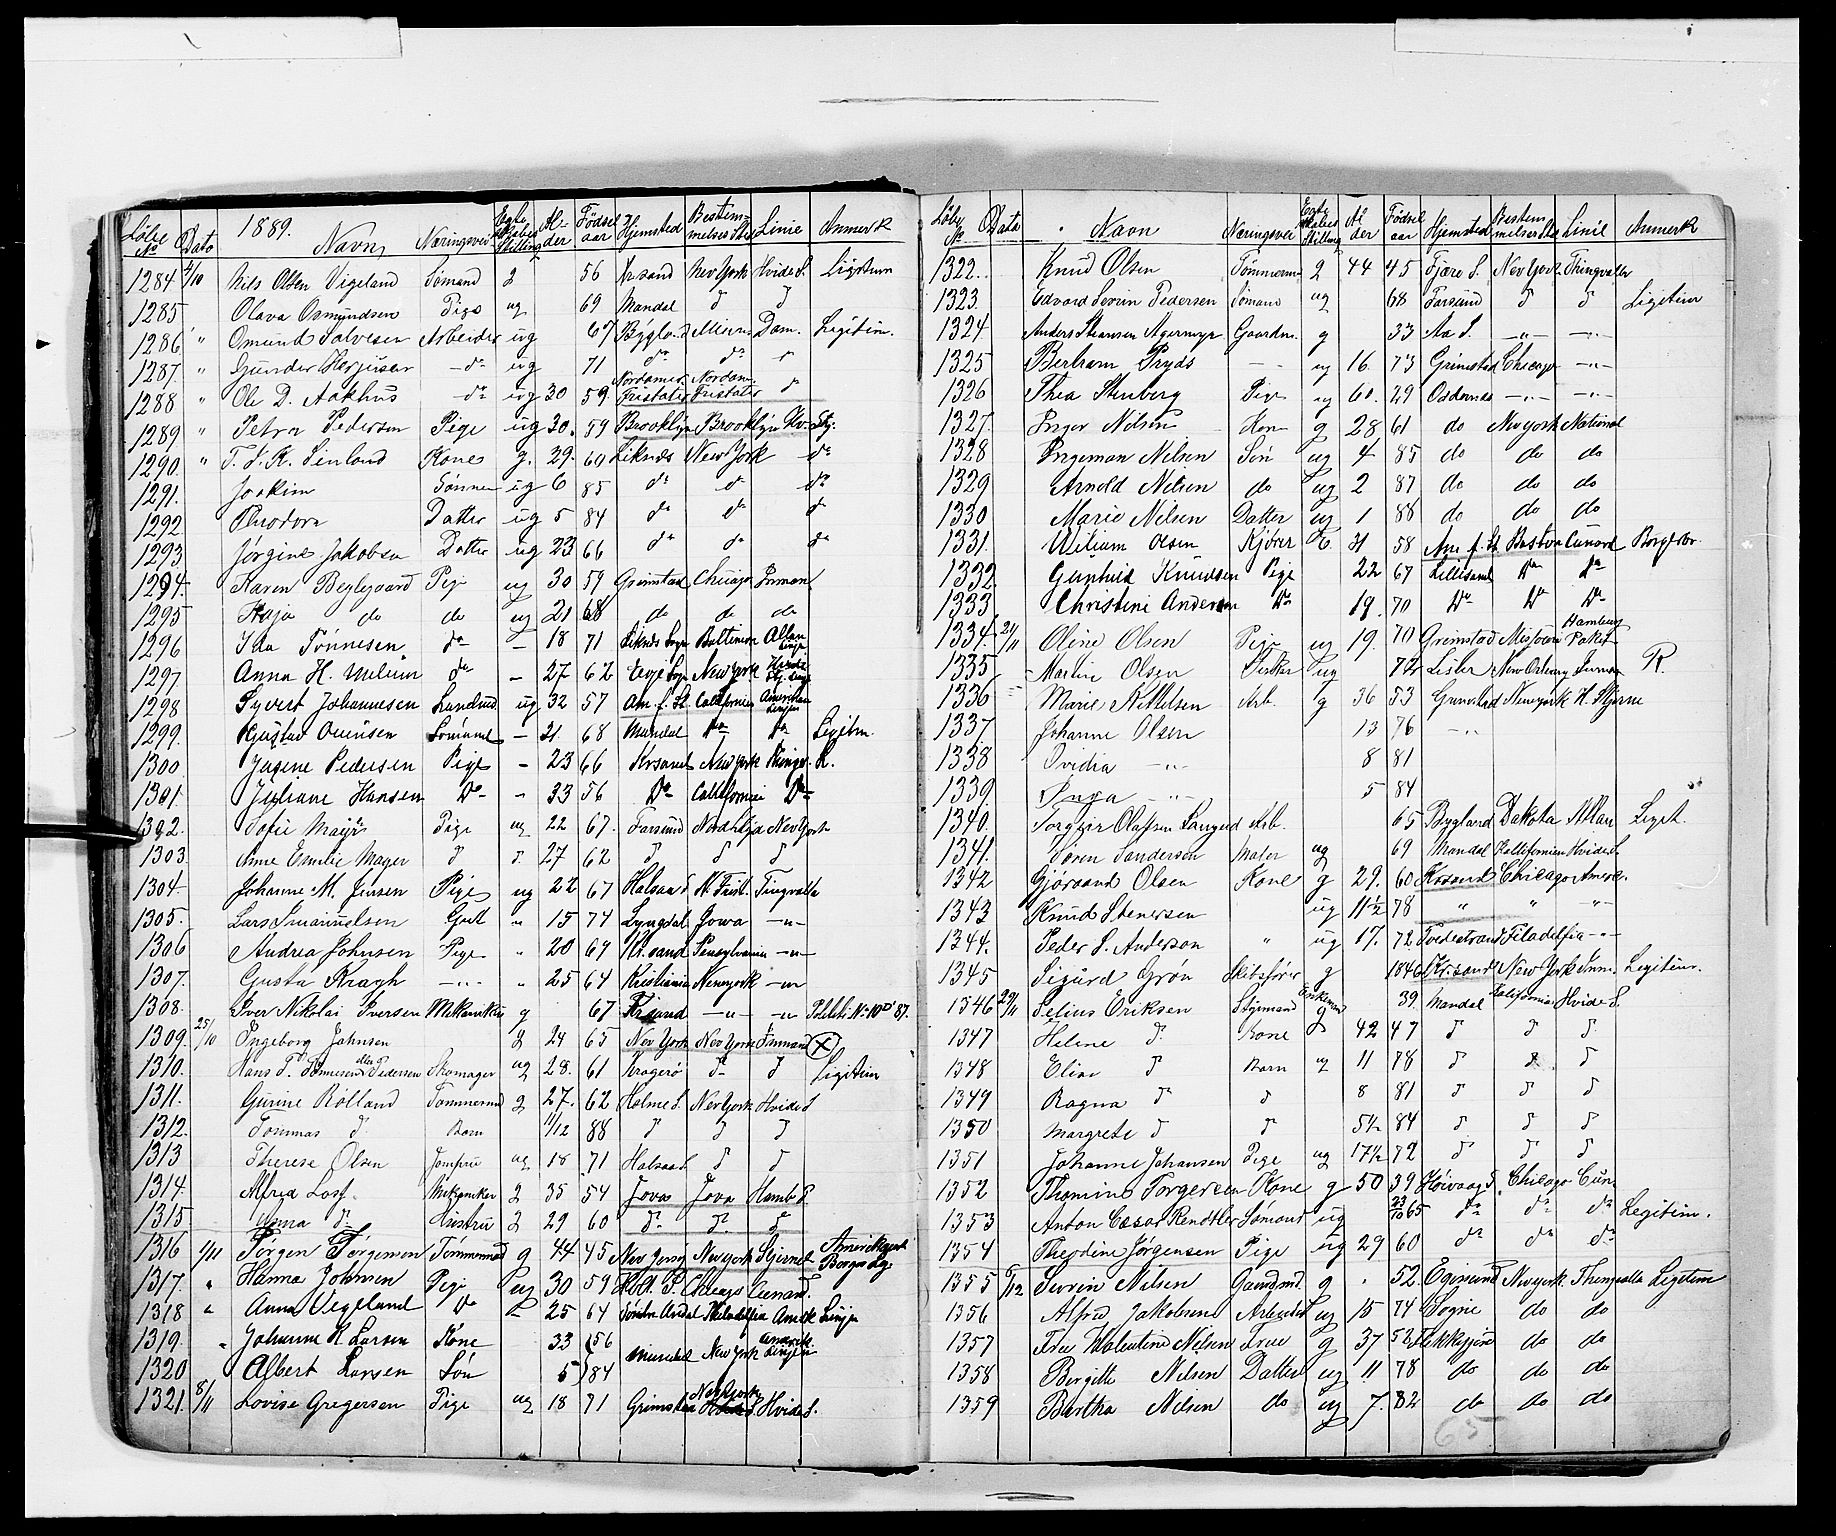 1889.
Løbe No Dato Navn Næringsvei Egteskabs Stilling Alder Fødselaar Hjemsted Bestemmelses Sted Linie Anmerk
1284 Nils Olsen Vigeland Sømand g 56 Kr.sand New York Hvide S. Legitim
1285 Olava Osmundsen Pige ug 69 Mandal d d
1286 " Omund Salvesen Arbeider ug 67 Bygl. Dam. Legitim.
1287. " Gunder Herjusen do ug 71 do do
1288 " Ole D. Aakhus do ug 30 59 Nordamer. Fristater Nordam. Fristater do
1289 " Petra Pedersen Pige ug 30. 59 Brooklyn Brooklyn Hv. Stj.
1290. " T. S. K. Senland Kone g. 29. 60 Liknes New York do
1291. Joakim Sønnen ug 6 85 do do do
1292. Theodora Datter ug 5 84 do do do
1293 Jørgine Jakobsen Datter ug 23 66 do do do
1294. Karen Beglegaard Pige ug 30 59 Grimstad Chicago Inman
1295 Kaja do do ug 21 68 do do do
1296 Ida Tønnesen do - 18 71 Liknes Sogn Baltimore Allan Linje
1297 Anna H. do - 27 62 Sogn New York Hvide Stj. Linje
1298 Syvert Johannesen ug 32 57 Am. f. St. Californien Amerikan Linjen
1299. Gustad Sømand - 21. 68 Mandal Do Do Legitim.
1300 Jugene Pedersen Pige - 23 66 Krsand New York Thingv. R.
1301. Juliane Hansen Do - 33 56 Do Californien Do
1302. Sofie Pige ug 22 67. Farsund New York
1303 Anne Emilie Mager d d. 27 62 d d d
1304 Johanne M. Jensen Pige ug 22 67 Halsaa S. N. Frist. Tingvalla
1305. Lars Emanuelsen Gut " 15 74 Lyngdal Jowa -"-
1306 Andrea Johnsen Pige " 20 69 Kr.sand Pensylvanien -"-
1307. Gusta Kragh -"- " 25 64 Kristiania New York -"-
1308. Iver Nikolai Iversen Mekanikus g 67 Kr.sand -"- -"-
1309. 25/10 Ingeborg Johnsen g 24 65 New York New York Inman
1310. Hans T. Tønnesen eller Pedersen Skomager ug 28. 61 Kragerø d d Legitim
1311. Gurine Rølland Tømmermd g 27. 62 Holme S. New York Hvide S
1312. Tommas d Barn 11/12 88 d d d
1313 Therese Olsen Jomfru ug 18 71 Halsaa S. d d
1314. Alfred Losf. Mekaniker g 35 54 Jova Jova Hamb. P.
1315 Anna do Hustru g 29 60 do do do
1316 1/11 Jørgen Jørgensen Tømmermd g 44 45 New Jersy New York Stjernel.
1317. " Hanna Johnsen Pige ug 30 59 Chicago Cunard.
1318 " Anna Vegeland Do 25 64 Søndre Undal Filadelfia Amrk Linje
1319. " Johanne K Larsen Kone 33 56 Mandal New York Amerik. Linjen
1320 Albert Larsen Søn 5 84
1321. 8/11 Lovise Gregersen Pige ug 18 71 Grimstad New York Hvide S.
Løbe No Dato Navn Næringsvei Egteskabs Stilling Alder Fødselaar Hjemsted Bestemmelses Sted Linie Anmerk
1322. Knud Olsen Tømmerm g 44 45 Fjære S. New York Thingvalla
1323. Edvard Severin Pedersen Sømand ug 68 Farsund d d Legitim
1324. Anders Gaardm. g 33 Aa S. -"- -"-
1325 Bertram Pryds -- ug 16. 73 Grimstad Chicago -"-
1326 Thea Stenberg Pige ug 60. 29 Oddernes -"- -"-
1327. Inger Nilsen Kone g 28 61 do New York National
1328 Ingeman Nilsen Søn ug 4 85 do do do
1329 Arnold Nilsen do ug 2 87 do do do
1330 Marie Nilsen Datter ug 1 88 do do do
1331. Wiliam Olsen Kjører 31 58 Am. f. St. Boston Cunard
1332 Gunhild Knudsen Pige 22 67 Lillesand Do Do
1333 Christine Andersen Do 19. 70 Do Do Do
1334. 21/11 Oline Olsen Pige ug 19. 70 Grimstad Missouri Hamburg Paket
1335 Martin Olsen Fisker ug 72 Lister New Orleans Inman R.
1336 Marie Nikkelsen Arb. g 36 53 Grimstad New York H. Stjerne
1337 Johanne Olsen 13 76 -"-
1338 Ovidia -"- 8 81
1339. Inga -"- 5 84
1340. Torgjer Olaffsen Langeid Arb. 65 Bygland Dakota Allan Legit.
1341. Søren Sandersen Maler ug 69 Mandal Kallifornien Hvide S.
1342 Gjørsand Olsen Kone g 29. 60 Krsand Chicago Amerc.
1343 Knud Stenersen ug 11½ 78 " " -"-
1344. Peder S. Andersen " ug 17. 72 Tvedestrand Filadelfia -"-
1345 Sigurd Grøn Skibsfører g 1846 Kr.sand New York Inm. Legitim.
1346 29/11 Selius Eriksen Styrmand Enkemand g 39. Mandal Kalifornien Hvide S.
1347 Helene d. Kone g 42 47 d d d.
1348 Elise d Barn ug 11 78 d d d
1349 Ragna d d 8 81 d d d
1350 Margrete d d 5½ 84 d d d
1351 Johanne Johansen Pige ug 17½ 72 d d d
1352 Thomine Torgersen Kone g 50 39 Høivaag S. Chicago Cun.
1353 Anton Cæsar Rendtler Sømand ug 23/10 65 do do do Legitim.
1354 Theodine Jørgensen Pige ug 29 60 do do do
1355 5/12 Severin Nilsen Gaardmd. g " 52. Egersund New York. Thingvalla Legitim
1356 Alfred Jakobsen Arbeider ug 15 74 Søgne do do
1357 Fru Valentine Nilsen Frue g 37 52 Flekkefjord do do
1358 Birgitte Nilsen Datter ug 11 78 do do do
1359 Bertha Nilsen do ug 7. 82 do do do
65